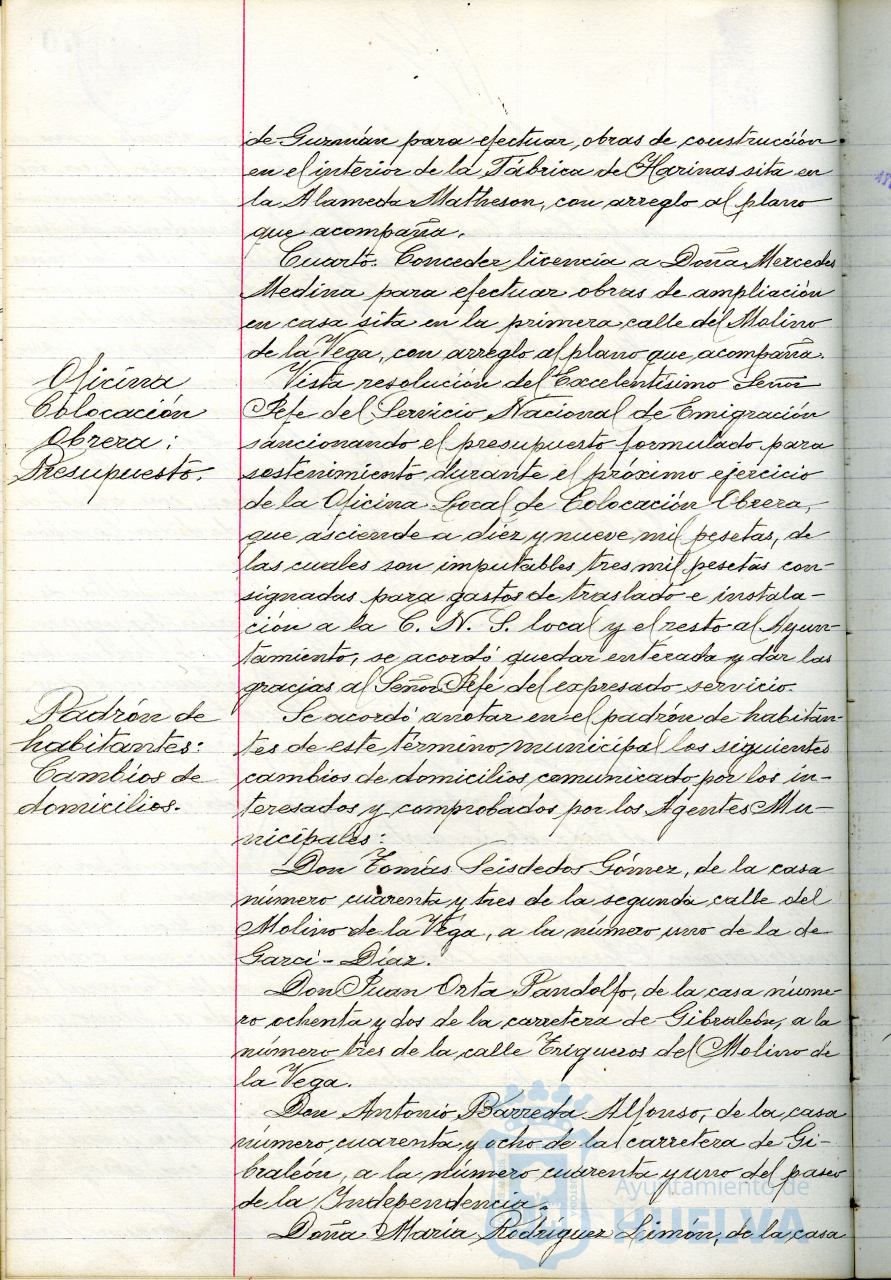 de Guzmán para efectuar, obras de construcción
en el interior de la Fábrica de Harinas sita en
la Alameda Matheson, con arreglo al plano
que acompaña.
Cuarto. Conceder licencia a Doña Mercedes
Medina para efectuar obras de ampliación
en casa sita en la primera calle del Molino
de la Vega, con arreglo al plano que acompaña.
Oficina
Colocación
Obrera:
Presupuesto.
Vista resolución del Excelentísimo Señor
Jefe del Servicio Nacional de Emigración
sancionando el presupuesto formulado para
sostenimiento durante el próximo ejercicio
de la Oficina Local de Colocación Obrera,
que asciende a diez y nueve mil pesetas, de
las cuales son imputables tres mil pesetas con-
signadas para gastos de traslado e instala-
ción a la C. N. S. local y el resto al Ayun-
tamiento, se acordó quedar enterada y dar las
gracias al Señor Jefe del expresado servicio.
Padrón de
habitantes:
Cambios de
domicilios.
Se acordó anotar en el padrón de habitan-
tes de este término municipal los siguientes
cambios de domicilios comunicado por los in-
teresados y comprobados por los Agentes Mu-
nicipales:
Don Tomás Seisdedos Gómez, de la casa
número cuarenta y tres de la segunda calle del
Molino de la Vega, a la número uno de la de
Garci-Díaz.
Don Juan Orta Pandolfo, de la casa núme-
ro ochenta y dos de la carretera de Gibraleón, a la
número tres de la calle Trigueros del Molino de
la Vega.
Don Antonio Barreda Alfonso, de la casa
número cuarenta y ocho de la carretera de Gi-
braleón, a la número cuarenta y uno del paseo
de la Independencia.
Doña María Rodríguez Limón, de la casa
Ayuntamiento de
HUELVA